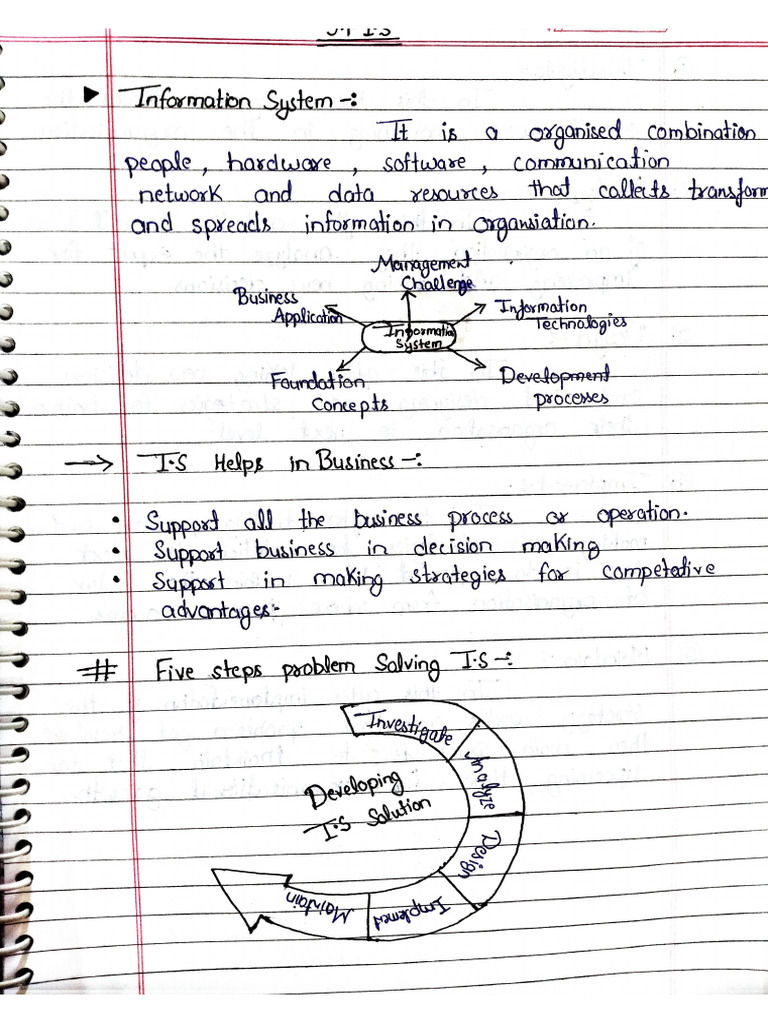 Information System -:
It is a organised combination
people, hardware, software, communication
network and data resources that collects transform
and spreads information in organsiation.
Management
Challenge
Business
Application
Information
Technologies
Information
System
Foundation
Concepts
Development
processes
I.S Helps in Business -:
• Support all the business process or operation.
• Support business in decision making
• Support in making strategies for competedive
advantages:-
# Five steps problem Solving I.S -:
Investigate
Analyze
Developing
I.S Solution
Design
Implemed
Maintain